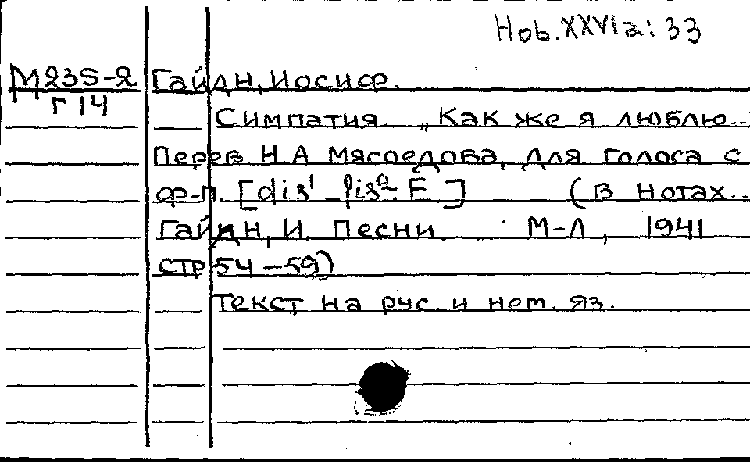 Hob. XXVIa: 33
М235-2 Гайдн, Иосиф.
Г 14
Симпатия. „Как же я люблю...
Перев Н А Мясоедова, для голоса с
ф-п. [dis¹ - fis² - E] (В нотах...
Гайдн, И. Песни. М-Л, 1941
стр 54-59)
Текст на рус и нем. яз.